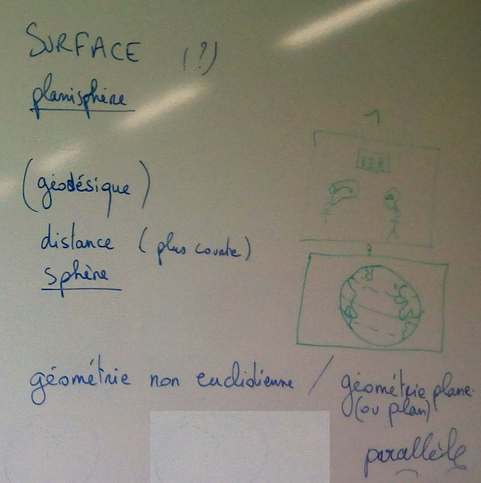 SURFACE (?)
planisphère
(géodésique)
distance (plus courte)
sphère
géométrie non euclidienne / géométrie plane
(ou plan)
parallèle